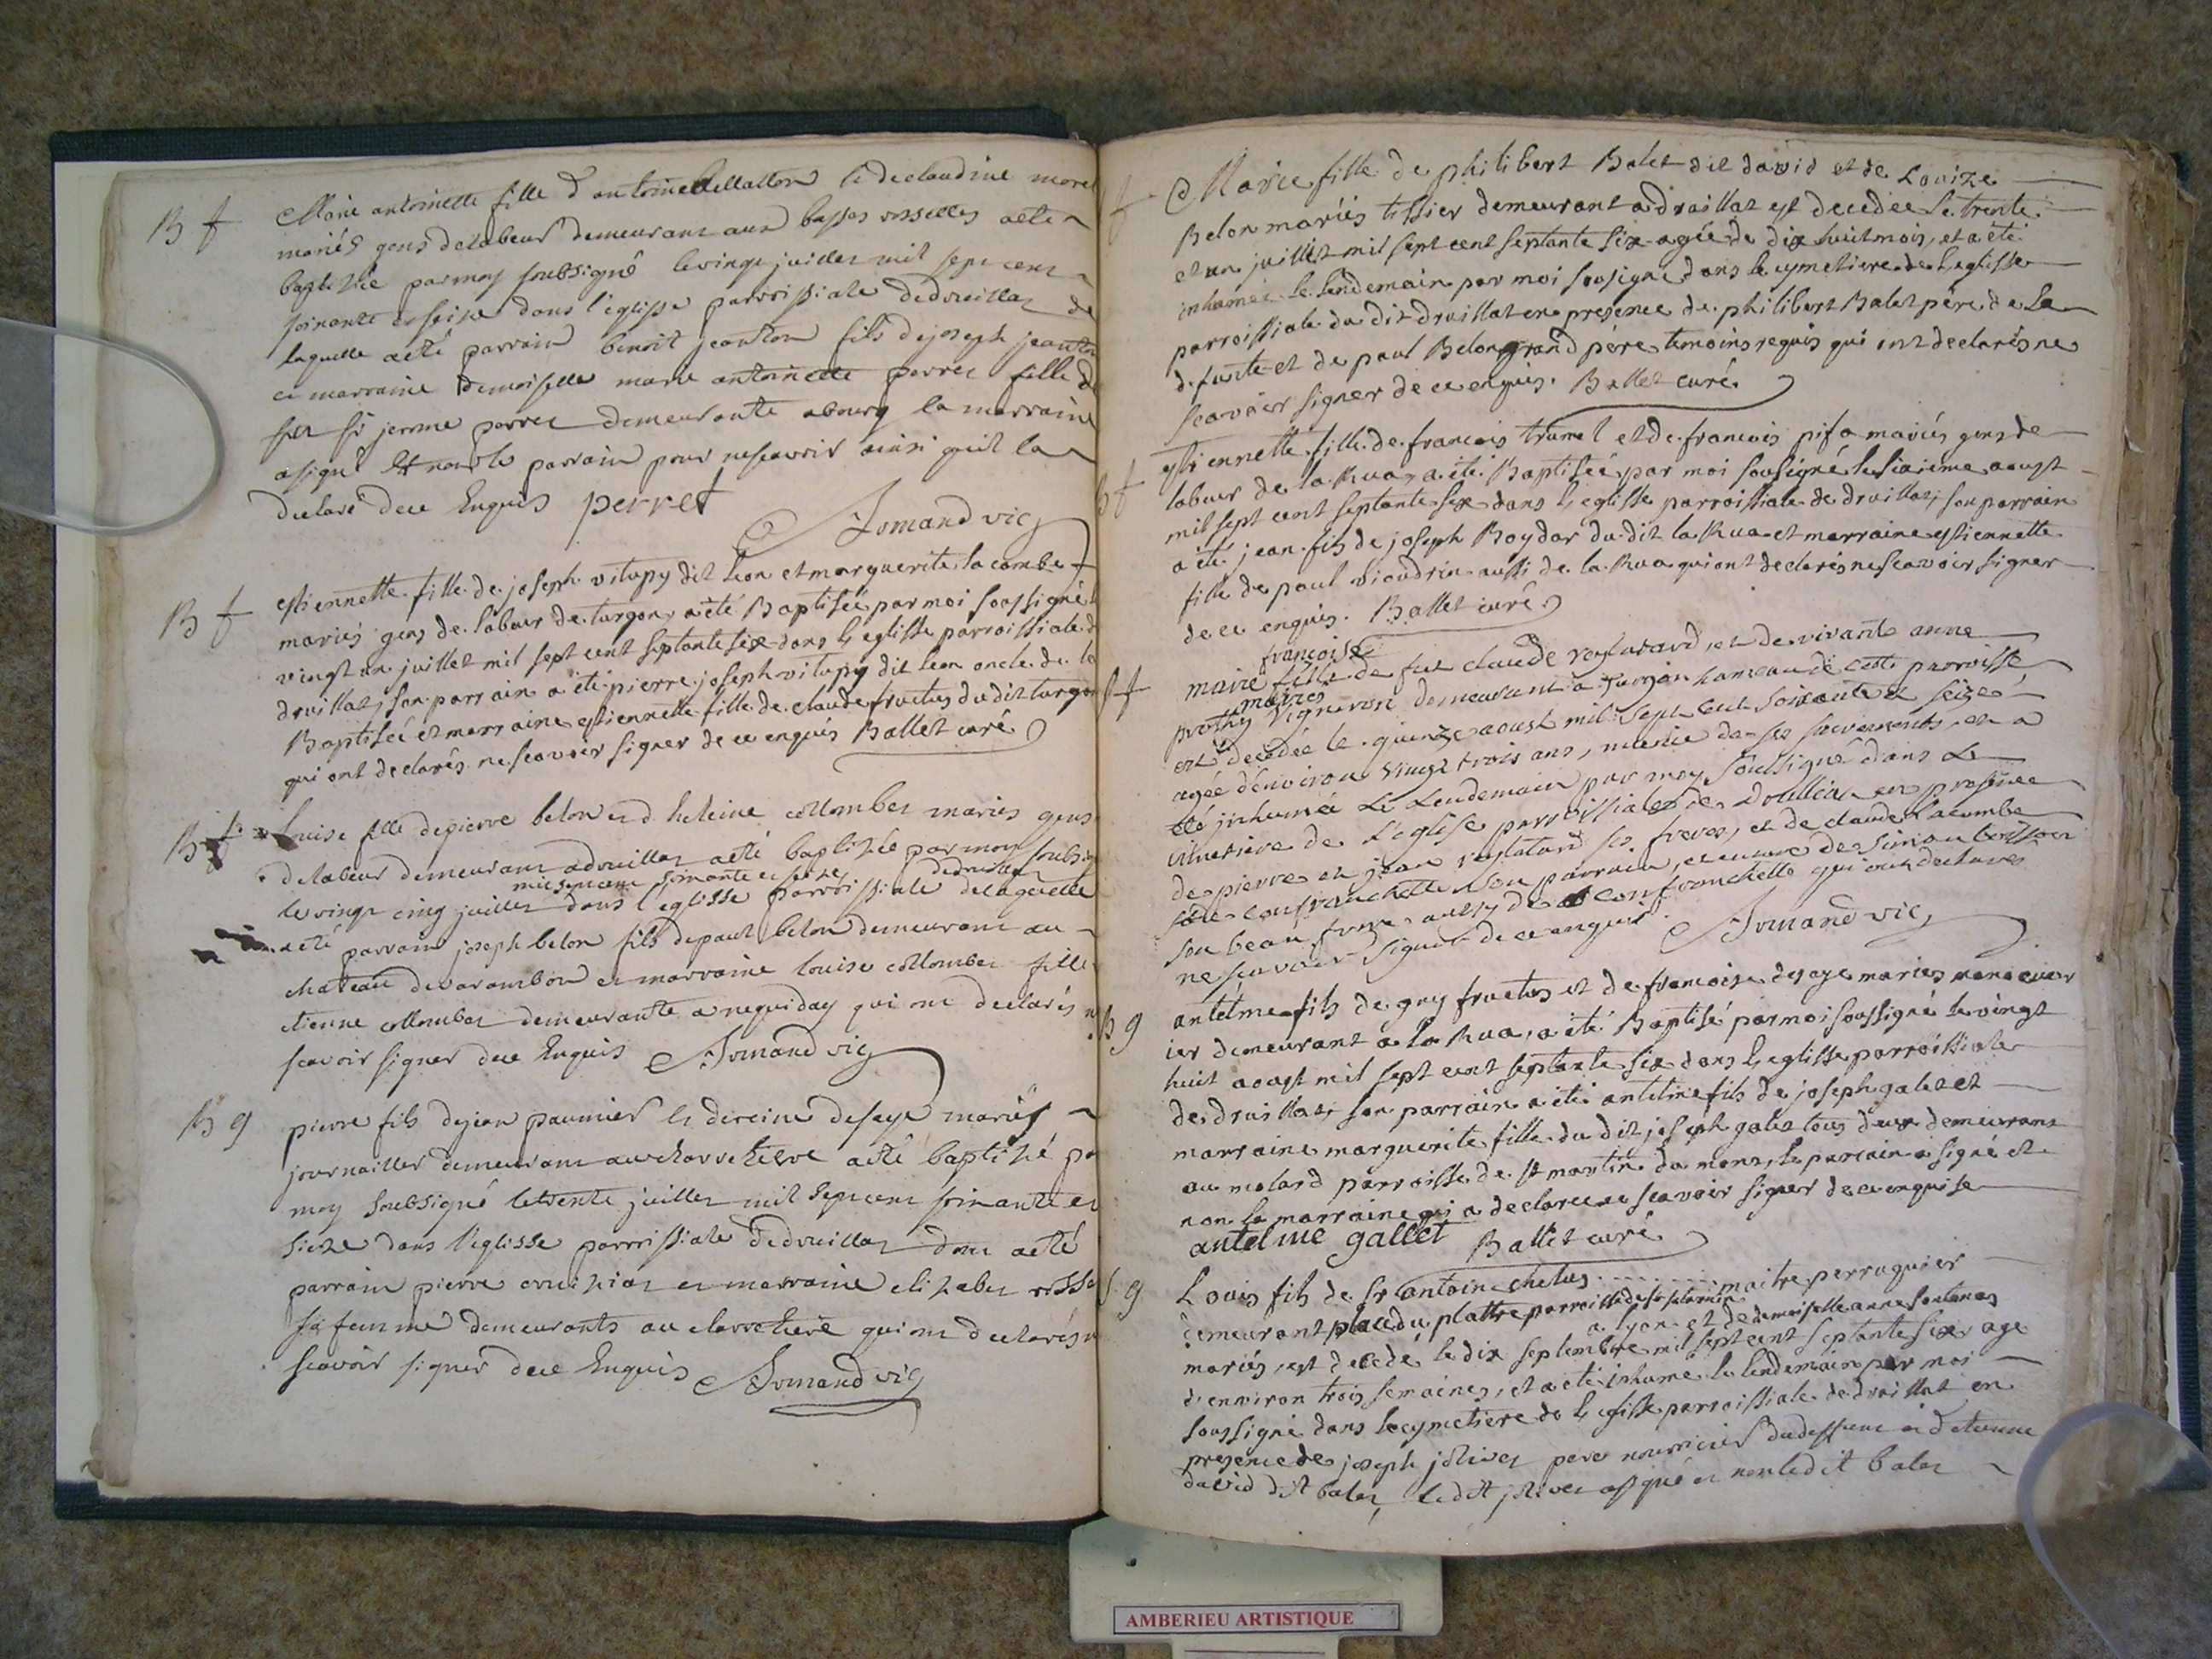 B f
Marie antoinette fille d'antoine Mellatton et de claudine morel
mariés gens de labeur demeurant aux basses vosselles a été
baptisée par moy soubsigné le vingt juillet mil sept cent
soixante et seize dans l'eglisse parroissiale de druillat de
laquelle a été parrain benoit jeanton fils de joseph jeanton
et marraine demoiselle marie antoinette perret fille de
feu sr jerome perret demeurante a bourg la marraine
a signé et non le parrain pour ne scavoir ainsi qu'il la
declaré de ce Enquis perret
Armand vic
B f
estiennette fille de joseph vitupy dit leon et marguerite la combe
mariés gens de labeur de turgon, a été Baptisée par moi soussigné le
vingt un juillet mil sept cent septante six dans l'eglisse parroissiale de
druillat, son parrain a été pierre joseph vitupy dit leon oncle de la
Baptisée et marraine estiennette fille de claude fructus du dit turgon
qui ont declarés ne scavoir signer de ce enquis Ballet curé
B f
Louise fille de pierre belon et d'heleine collombet mariés gens
de labeur demeurant a druillat a été baptisée par moy soubsigné
mil sept cent soixante et seize de druillat
le vingt cinq juillet dans l'eglisse parroissiale de laquelle
a été parrain joseph belon fils de paul belon demeurant au
chateau de varambon et marraine louise collombet fille
etienne collombet demeurante a requiday qui ont declarés ne
scavoir signer de ce Enquis Armand vic
B g
pierre fils de jean paumier et de reine desaye mariés
journaillier demeurant au charretiere a été baptisé par
moy soubsigné le trente juillet mil sept cent soixante et
sieze dans l'eglisse parroissiale de druillat dont a été
parrain pierre et marraine elizabet
sa femme demeurants au charretiere qui ont declarés ne
scavoir signer de ce Enquis Armand vic
f
Marie fille de philibert Balet dit david et de Louize
Belon mariés tissier demeurant a druillat est decedée le trente
et un juillet mil sept cent septante six agée de dix huit mois, et a été
inhumée le lendemain par moi sousigné dans le cymetiere de l'eglisse
parroissiale du dit druillat en presence de philibert Balet père de la
defunte et de paul Belon grand père temoins requis qui ont declarés ne
scavoir signer de ce enquis. Ballet curé
b f
estiennette fille de francois trumel et de francois pisa mariés gens de
labeur de la Rua, a été Baptisée par moi sousigné le sixieme aoust
mil sept cent septante six dans l'eglisse parroissiale de druillat, son parrain
a été jean fils de joseph Boydar du dit la Rua et marraine estiennette
fille de paul viaudrin aussi de la Rua qui ont declarés ne scavoir signer
de ce enquis. Ballet curé
S f
françoise
marie fille de feu claude reylatard, et de vivante anne
mariés
prothy vigneron demeurant a turgon hameau de cette parroisse
est decedée le quinze aoust mil sept cent soixante et seize
agée d'environ vingt trois ans, munie de ses sacrements, et a
été inhumée le lendemain par moy soussigné dans le
cimetiere de l'eglise parroissiale de druillat en presence
de pierre et jean reylatard ses freres, et de claude lacombe
de confranchette son parrain, et encore de simon boisson
son beau frere aussy de confranchette qui ont declarés
ne scavoir signer de ce enquis Armand vic
B g
antelme fils de guy fructus et de francoise desaye mariés manoeuvr
ier demeurant a la Rua, a été Baptisé par moi soussigné le vingt
huit aoust mil sept cent septante six dans l'eglisse parroissiale
de druillat, son parrain a été antelme fils de joseph galet et
marraine marguerite fille du dit joseph galet tous deux demeurant
au molard parroisse de st martin du mont, le parrain a signé et
non la marraine qui a declaree ne scavoir signer de ce enquise
antelme gallet Ballet curé
S g
Louis fils de sr antoin chelus maitre perruquier
demeurant place du plattre parroisse de st saturnin
a lyon et de demoiselle anne fontenas
mariés, est decedé le dix septembre mil sept cent septante six age
d'environ trois semaines, et a été inhumé le lendemain par moi
soussigné dans le cymetiere de l'eglisse parroissiale de druillat en
presence de joseph jolivet pere nourricier du deffunt et d'etienne
david dit balet, ledit jolivet a signé et non ledit balet
AMBERIEU ARTISTIQUE